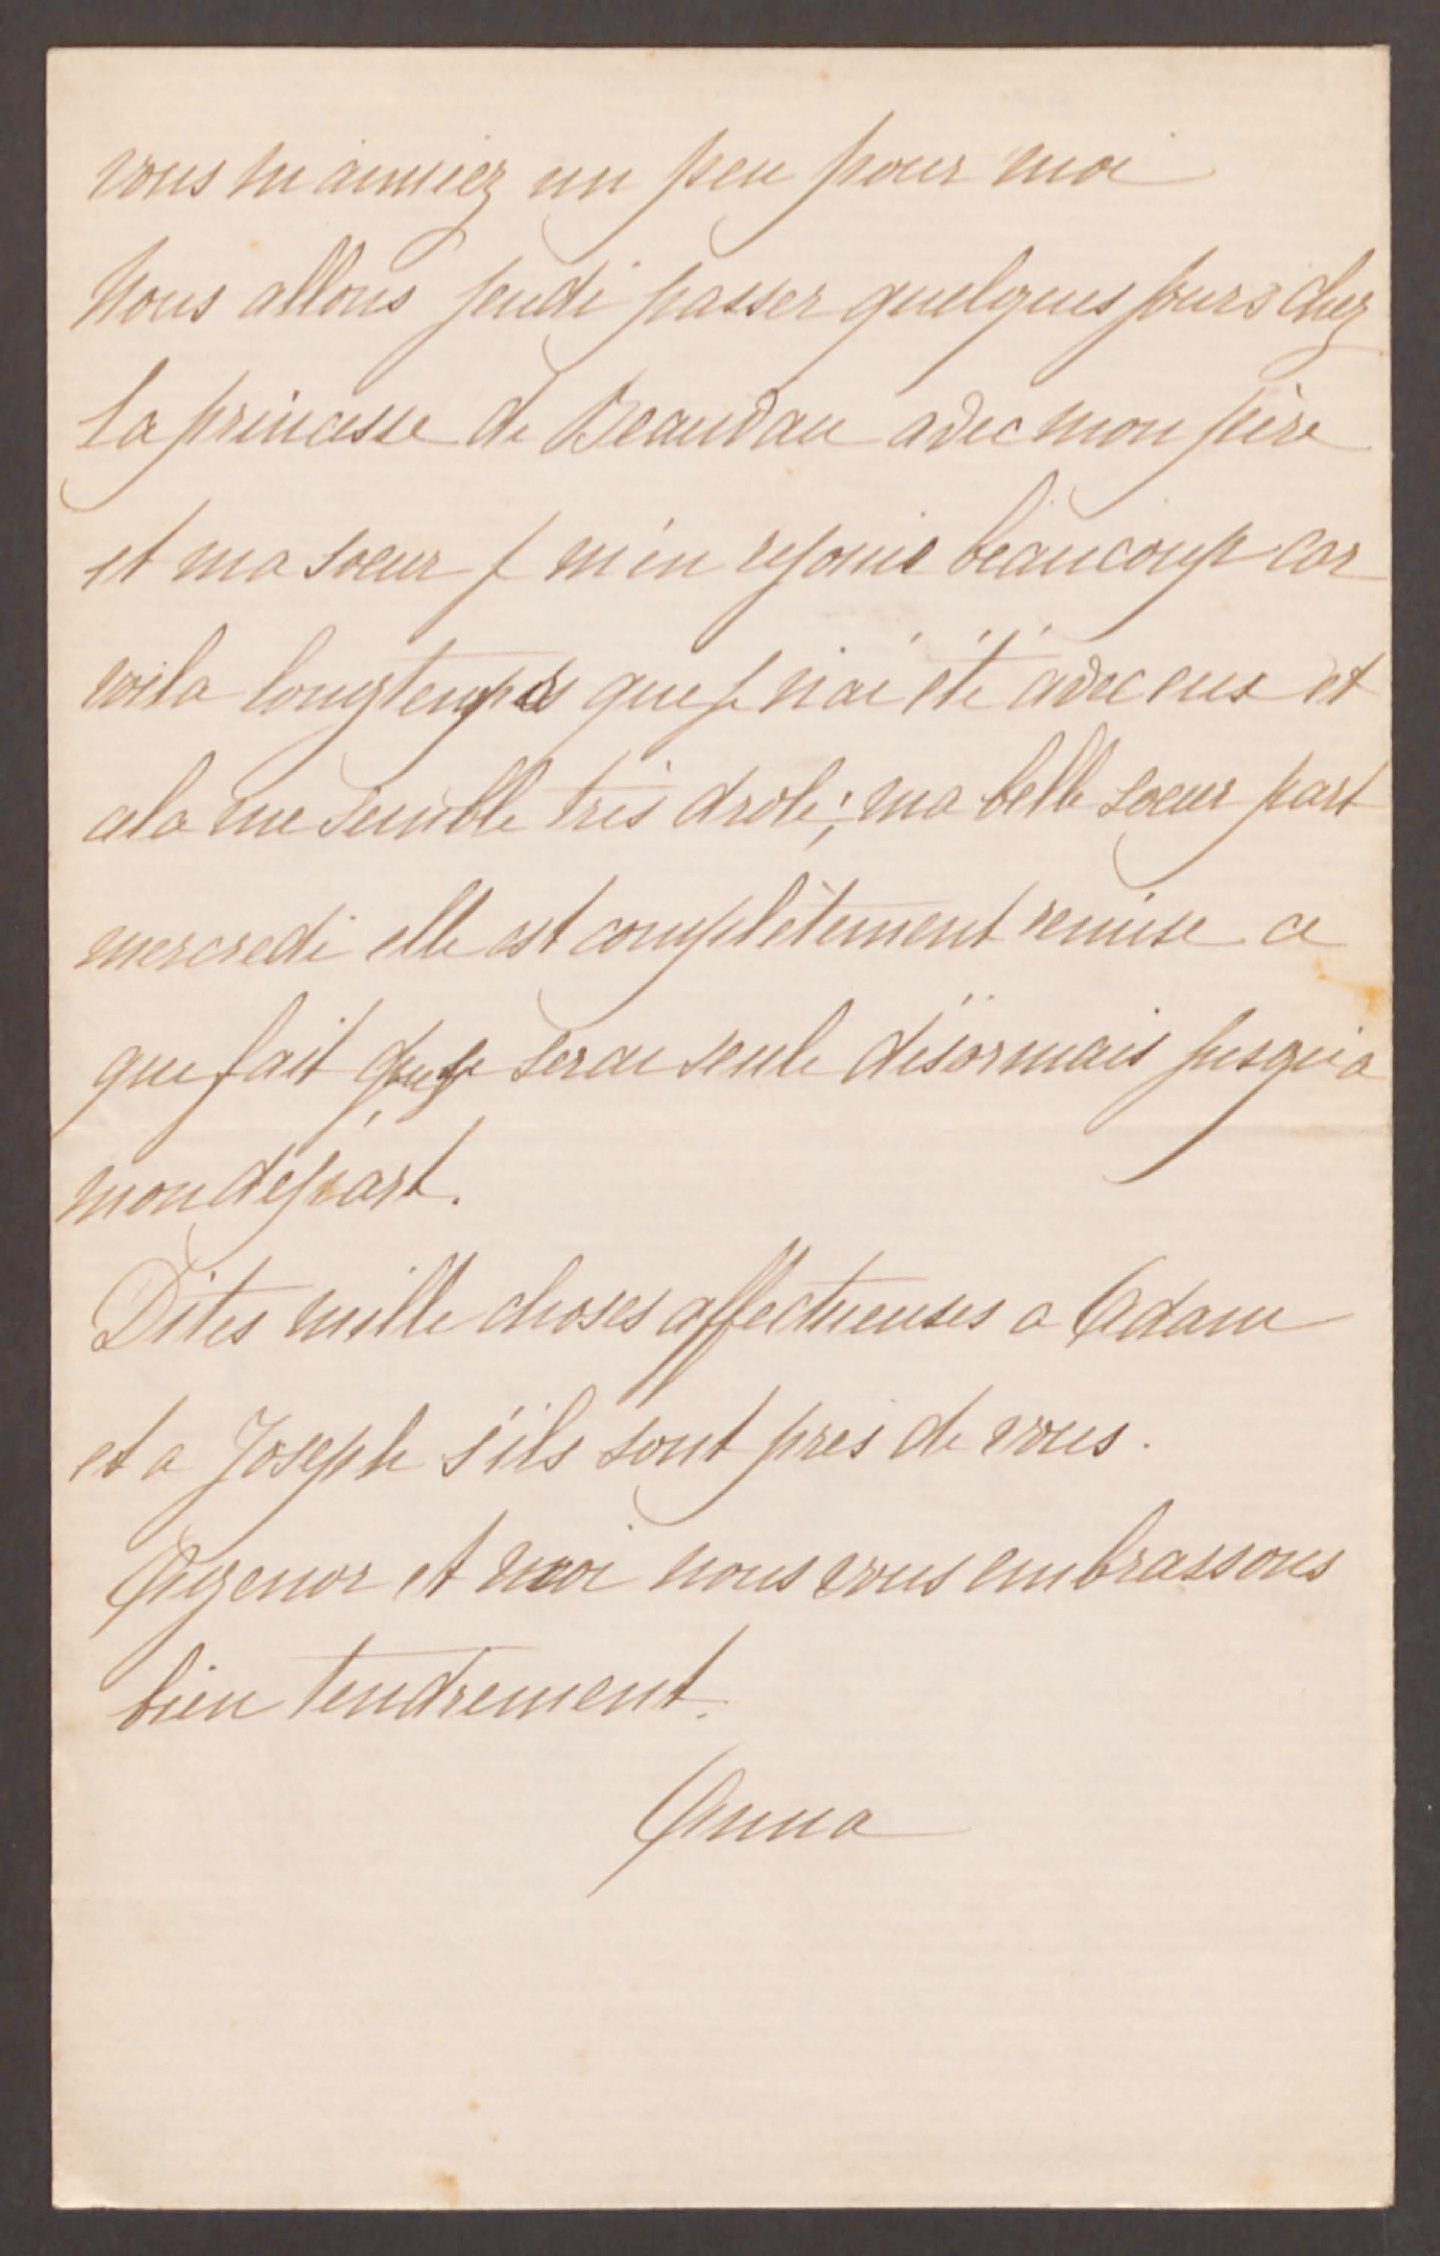 vous m'aimiez un peu pour moi
Nous allons jeudi passer quelques jours chez
la princesse de Beauvau avec mon père
et ma soeur je m'en rejouis beaucoup car
voila longtemps que je n'ai été avec eux et
cela me semble très drole; ma belle soeur part
mercredi elle est complètement remise ce
que fait que je serai seule désormais jusqu'a
mon départ.
Dites mille choses affectueuses a Adam
et a Joseph s'ils sont pres de vous.
Agenor et moi nous vous embrassons
bien tendrement.
Anna